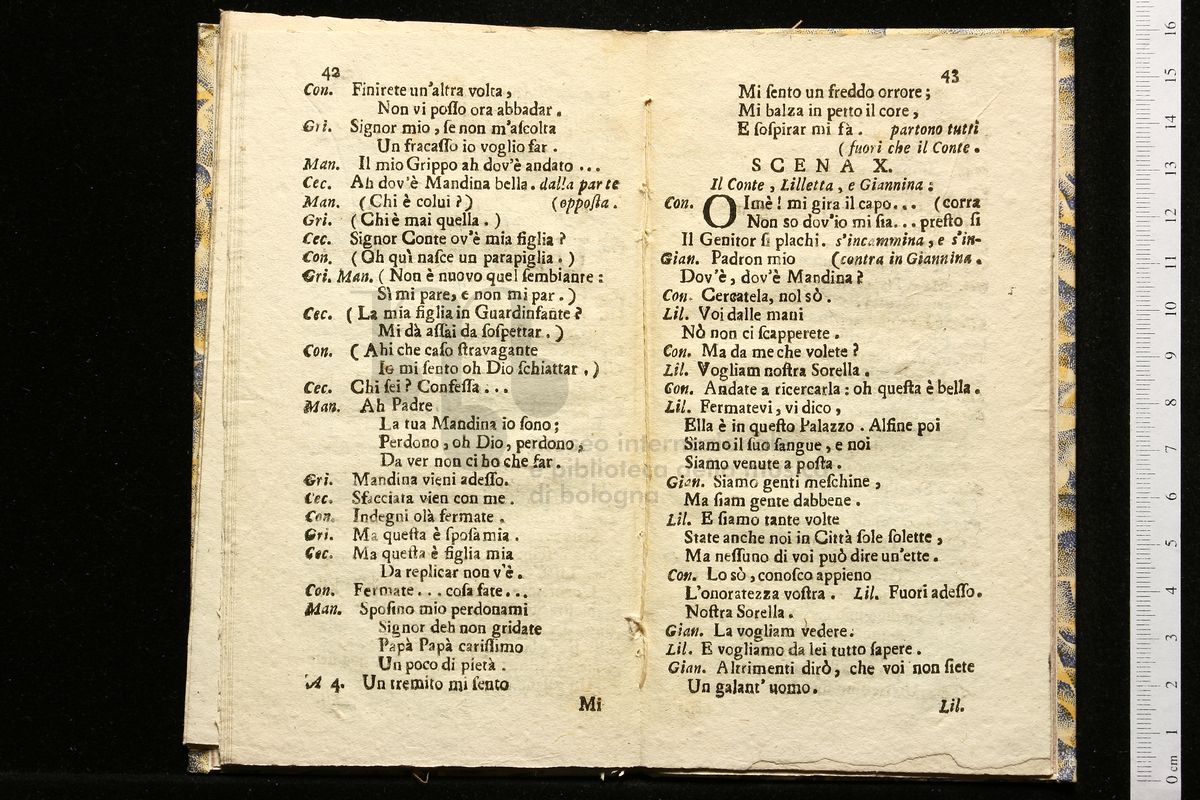 42
Con. Finirete un'altra volta,
Non vi poſſo ora abbadar.
Gri. Signor mio, ſe non m'aſcolta
Un fracaſſo io voglio far.
Man. Il mio Grippo ah dov'è andato ...
Cec. Ah dov'è Mandina bella. dalla parte
Man. (Chi è colui?) (oppoſta.
Gri. (Chi è mai quella.)
Cec. Signor Conte ov'è mia figlia?
Con. (Oh quì naſce un parapiglia.)
Gri. Man. (Non è nuovo quel ſembiante:
Sì mi pare, e non mi par.)
Cec. (La mia figlia in Guardinfante?
Mi dà aſſai da ſoſpettar.)
Con. (Ahi che caſo ſtravagante
Io mi ſento oh Dio ſchiattar.)
Cec. Chi ſei? Confeſſa...
Man. Ah Padre
La tua Mandina io ſono;
Perdono, oh Dio, perdono,
Da ver non ci ho che far.
Gri. Mandina vieni adeſſo.
Cec. Sfacciata vien con me.
Con. Indegni olà fermate.
Gri. Ma queſta è ſpoſa mia.
Cec. Ma queſta è figlia mia
Da replicar non v'è.
Con. Fermate... coſa fate...
Man. Spoſino mio perdonami
Signor deh non gridate
Papà Papà cariſſimo
Un poco di pietà.
A 4. Un tremito mi ſento
Mi
43
Mi ſento un freddo orrore;
Mi balza in petto il core,
E ſoſpirar mi fà. partono tutti
(fuori che il Conte.
SCENA X.
Il Conte, Lilletta, e Giannina:
Con. OImè! mi gira il capo... (corra
Non so dov'io mi ſia... preſto ſi
Il Genitor ſi plachi. s'incammina, e s'in-
Gian. Padron mio (contra in Giannina.
Dov'è, dov'è Mandina?
Con. Cercatela, nol sò.
Lil. Voi dalle mani
Nò non ci ſcapperete.
Con. Ma da me che volete?
Lil. Vogliam noſtra Sorella.
Con. Andate a ricercarla: oh queſta è bella.
Lil. Fermatevi, vi dico,
Ella è in queſto Palazzo. Alfine poi
Siamo il ſuo ſangue, e noi
Siamo venute a poſta.
Gian. Siamo genti meſchine,
Ma ſiam gente dabbene.
Lil. E ſiamo tante volte
State anche noi in Città ſole ſolette,
Ma neſſuno di voi può dire un'ette.
Con. Lo sò, conoſco appieno
L'onoratezza voſtra. Lil. Fuori adeſſo.
Noſtra Sorella.
Gian. La vogliam vedere.
Lil. E vogliamo da lei tutto ſapere.
Gian. Altrimenti dirò, che voi non ſiete
Un galant' uomo.
Lil.
di bologna
0 cm 1 2 3 4 5 6 7 8 9 10 11 12 13 14 15 16